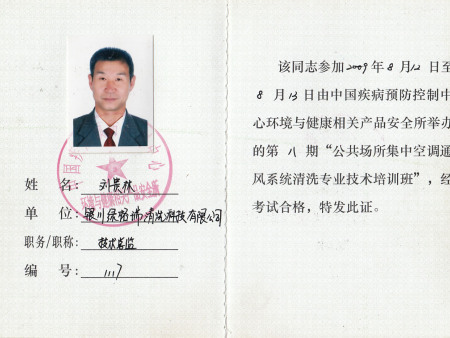 姓 名: 刘景林
单 位: 银川绿裕沛清洗科技有限公司
职务/职称: 技术总监
编 号: 1117
环境与健康相关产品安全所
该同志参加2009年8月12日至
8月13日由中国疾病预防控制中
心环境与健康相关产品安全所举办
的第八期“公共场所集中空调通
风系统清洗专业技术培训班”,经
考试合格,特发此证。